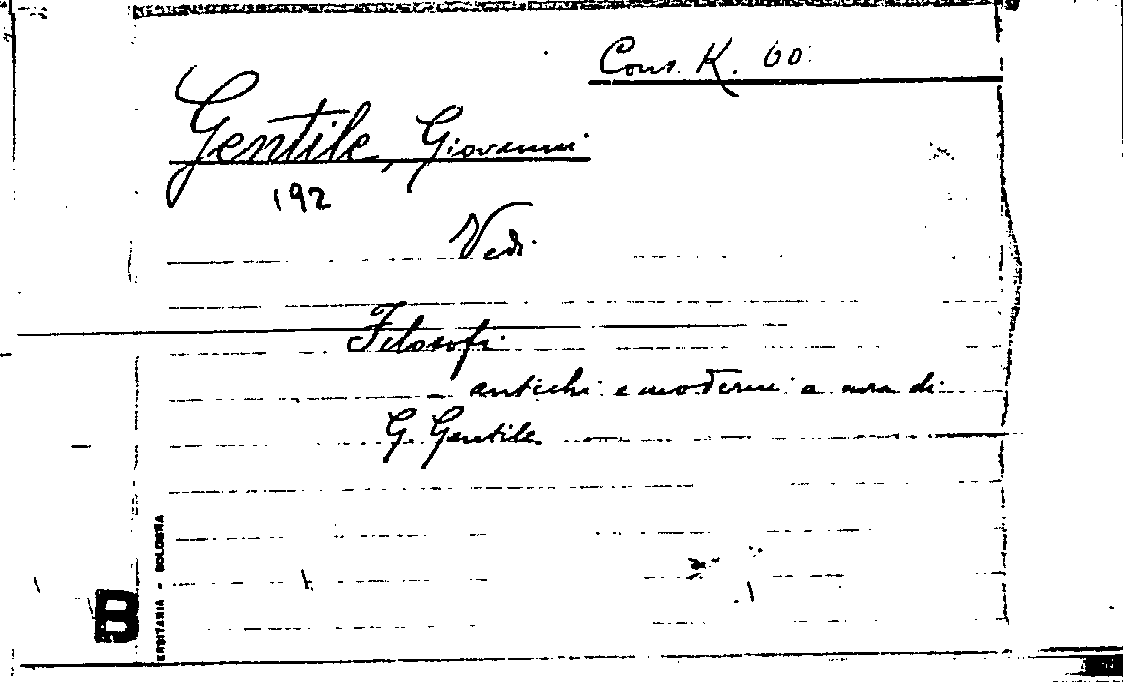 Cons. K. 60
Gentile, Giovanni
192
Vedi
Filosofi
antichi e moderni a cura di
G. Gentile
B
BOLOGNA